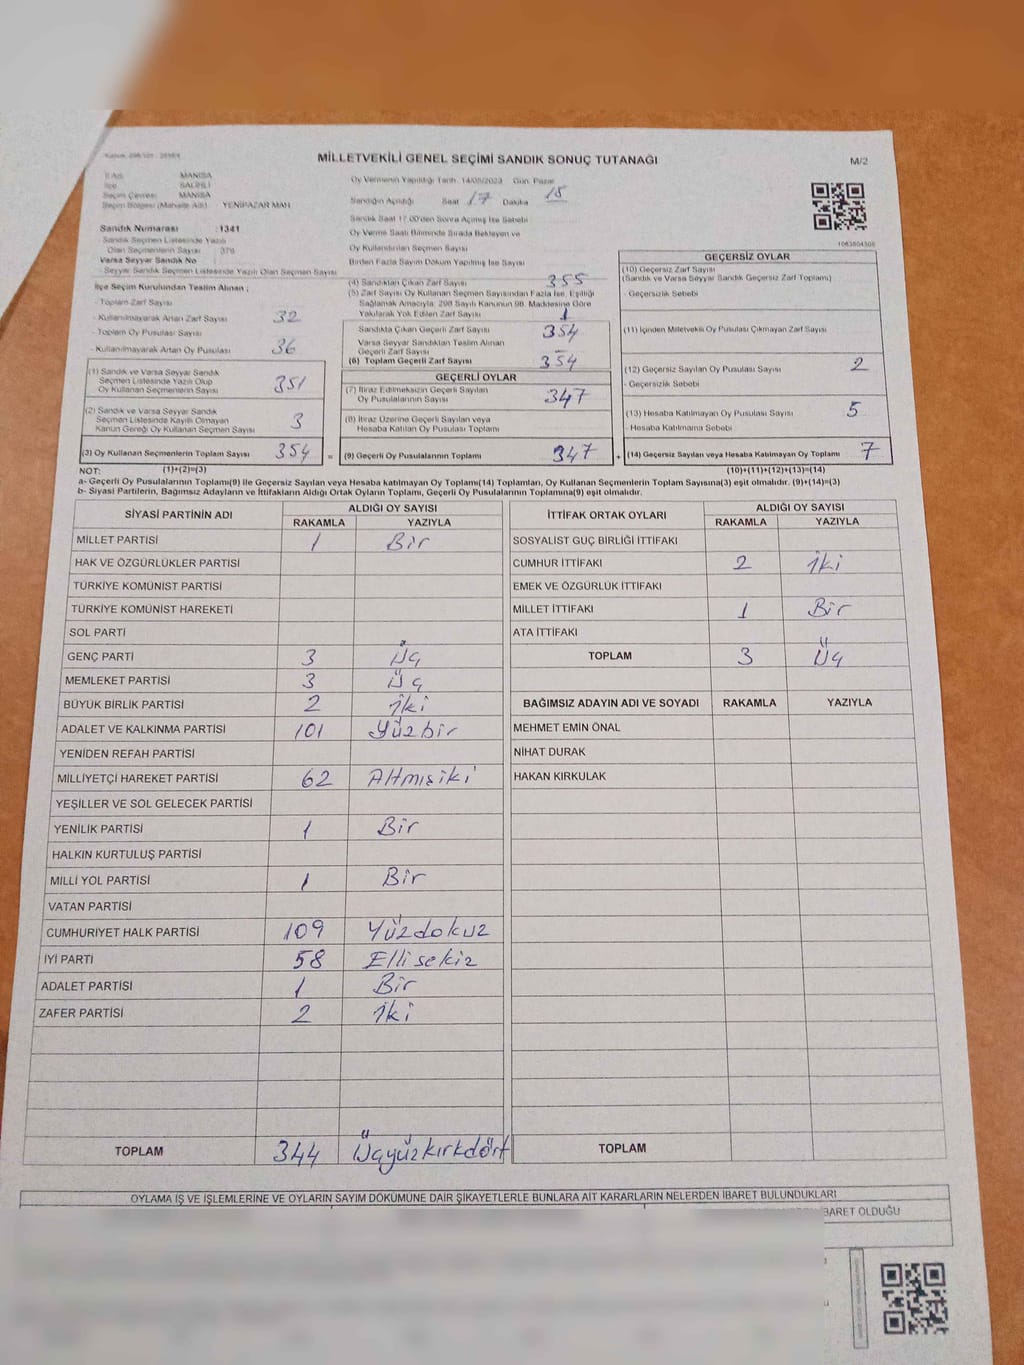 MİLLETVEKİLİ GENEL SEÇİMİ SANDIK SONUÇ TUTANAĞI
M/2
İl Adı MANİSA
İlçe SALİHLİ
Seçim Çevresi MANİSA
Seçim Bölgesi (Mahalle Adı) YENİPAZAR MAH.
Sandık Numarası : 1341
- Sandık Seçmen Listesinde Yazılı
Olan Seçmenlerin Sayısı : 378
Varsa Seyyar Sandık No :
- Seyyar Sandık Seçmen Listesinde Yazılı Olan Seçmen Sayısı
İlçe Seçim Kurulundan Teslim Alınan ;
- Toplam Zarf Sayısı
- Kullanılmayarak Artan Zarf Sayısı 32
- Toplam Oy Pusulası Sayısı
- Kullanılmayarak Artan Oy Pusulası 36
(1) Sandık ve Varsa Seyyar Sandık
Seçmen Listesinde Yazılı Olup
Oy Kullanan Seçmenlerin Sayısı 351
(2) Sandık ve Varsa Seyyar Sandık
Seçmen Listesinde Kayıtlı Olmayan
Kanun Gereği Oy Kullanan Seçmen Sayısı 3
(3) Oy Kullanan Seçmenlerin Toplam Sayısı 354 =
Oy Vermenin Yapıldığı Tarih: 14/05/2023 Gün: Pazar
Sandığın Açıldığı Saat 17 Dakika 18
Sandık Saat 17.00'den Sonra Açılmış İse Sebebi
Oy Verme Saati Bitiminde Sırada Bekleyen ve
Oy Kullandırılan Seçmen Sayısı
Birden Fazla Sayım Döküm Yapılmış İse Sayısı
(4) Sandıktan Çıkan Zarf Sayısı 355
(5) Zarf Sayısı Oy Kullanan Seçmen Sayısından Fazla İse, Eşitliği
Sağlamak Amacıyla, 298 Sayılı Kanunun 98. Maddesine Göre
Yakılarak Yok Edilen Zarf Sayısı 1
Sandıkta Çıkan Geçerli Zarf Sayısı 354
Varsa Seyyar Sandıktan Teslim Alınan
Geçerli Zarf Sayısı
(6) Toplam Geçerli Zarf Sayısı 354
GEÇERLİ OYLAR
(7) İtiraz Edilmeksizin Geçerli Sayılan
Oy Pusulalarının Sayısı 347
(8) İtiraz Üzerine Geçerli Sayılan veya
Hesaba Katılan Oy Pusulası Toplamı
(9) Geçerli Oy Pusulalarının Toplamı 347 +
1063804308
GEÇERSİZ OYLAR
(10) Geçersiz Zarf Sayısı
(Sandık ve Varsa Seyyar Sandık Geçersiz Zarf Toplamı)
- Geçersizlik Sebebi
(11) İçinden Milletvekili Oy Pusulası Çıkmayan Zarf Sayısı
(12) Geçersiz Sayılan Oy Pusulası Sayısı 2
- Geçersizlik Sebebi
(13) Hesaba Katılmayan Oy Pusulası Sayısı 5
- Hesaba Katılmama Sebebi
(14) Geçersiz Sayılan veya Hesaba Katılmayan Oy Toplamı 7
NOT: (1)+(2)=(3) (10)+(11)+(12)+(13)=(14)
a- Geçerli Oy Pusulalarının Toplamı(9) ile Geçersiz Sayılan veya Hesaba katılmayan Oy Toplamı(14) Toplamları, Oy Kullanan Seçmenlerin Toplam Sayısına(3) eşit olmalıdır. (9)+(14)=(3)
b- Siyasi Partilerin, Bağımsız Adayların ve İttifakların Aldığı Ortak Oyların Toplamı, Geçerli Oy Pusulalarının Toplamına(9) eşit olmalıdır.
SİYASİ PARTİNİN ADI ALDIĞI OY SAYISI
RAKAMLA YAZIYLA
MİLLET PARTİSİ 1 Bir
HAK VE ÖZGÜRLÜKLER PARTİSİ
TÜRKİYE KOMÜNİST PARTİSİ
TÜRKİYE KOMÜNİST HAREKETİ
SOL PARTİ
GENÇ PARTİ 3 Üç
MEMLEKET PARTİSİ 3 Üç
BÜYÜK BİRLİK PARTİSİ 2 İki
ADALET VE KALKINMA PARTİSİ 101 Yüzbir
YENİDEN REFAH PARTİSİ
MİLLİYETÇİ HAREKET PARTİSİ 62 Altmışiki
YEŞİLLER VE SOL GELECEK PARTİSİ
YENİLİK PARTİSİ 1 Bir
HALKIN KURTULUŞ PARTİSİ
MİLLİ YOL PARTİSİ 1 Bir
VATAN PARTİSİ
CUMHURİYET HALK PARTİSİ 109 Yüzdokuz
İYİ PARTİ 58 Ellisekiz
ADALET PARTİSİ 1 Bir
ZAFER PARTİSİ 2 İki
TOPLAM 344 Üçyüzkırkdört
İTTİFAK ORTAK OYLARI ALDIĞI OY SAYISI
RAKAMLA YAZIYLA
SOSYALİST GÜÇ BİRLİĞİ İTTİFAKI
CUMHUR İTTİFAKI 2 İki
EMEK VE ÖZGÜRLÜK İTTİFAKI
MİLLET İTTİFAKI 1 Bir
ATA İTTİFAKI
TOPLAM 3 Üç
BAĞIMSIZ ADAYIN ADI VE SOYADI RAKAMLA YAZIYLA
MEHMET EMİN ÖNAL
NİHAT DURAK
HAKAN KIRKULAK
TOPLAM
OYLAMA İŞ VE İŞLEMLERİNE VE OYLARIN SAYIM DÖKÜMÜNE DAİR ŞİKAYETLERLE BUNLARA AİT KARARLARIN NELERDEN İBARET BULUNDUKLARI
İBARET OLDUĞU